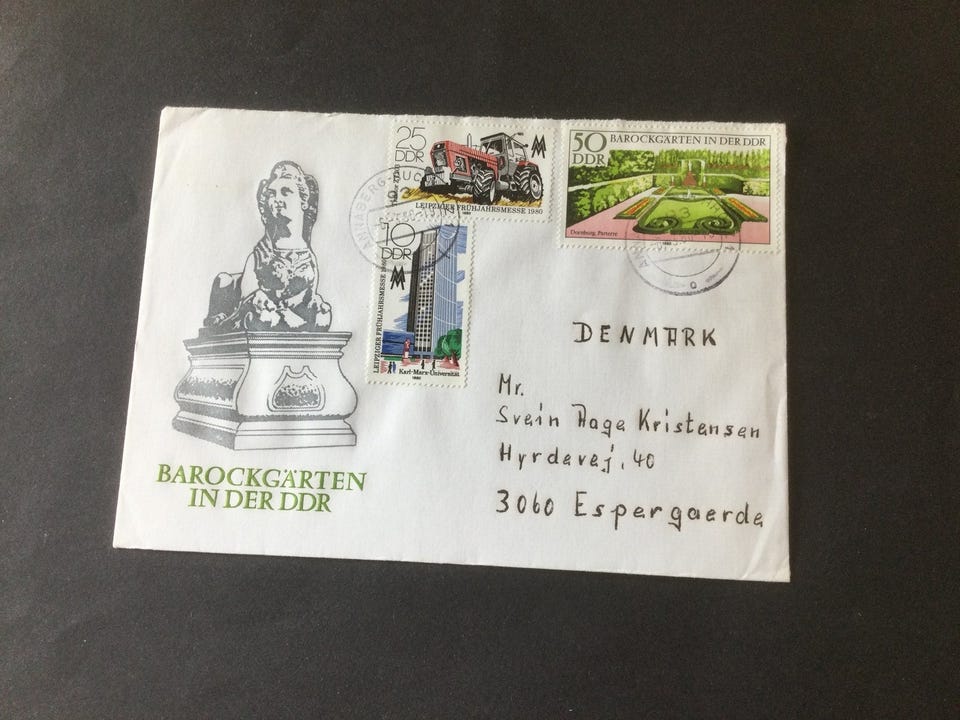 25
DDR
LEIPZIGER FRÜHJAHRSMESSE 1980
50
DDR
BAROCKGÄRTEN IN DER DDR
Dornburg, Parterre
1980
10
DDR
LEIPZIGER FRÜHJAHRSMESSE 1980
Karl-Marx-Universität
1980
ANNABERG-BUCH
BAROCKGÄRTEN
IN DER DDR
DENMARK
Mr.
Svein Aage Kristensen
Hyrdevej. 40
3060 Espergaerde